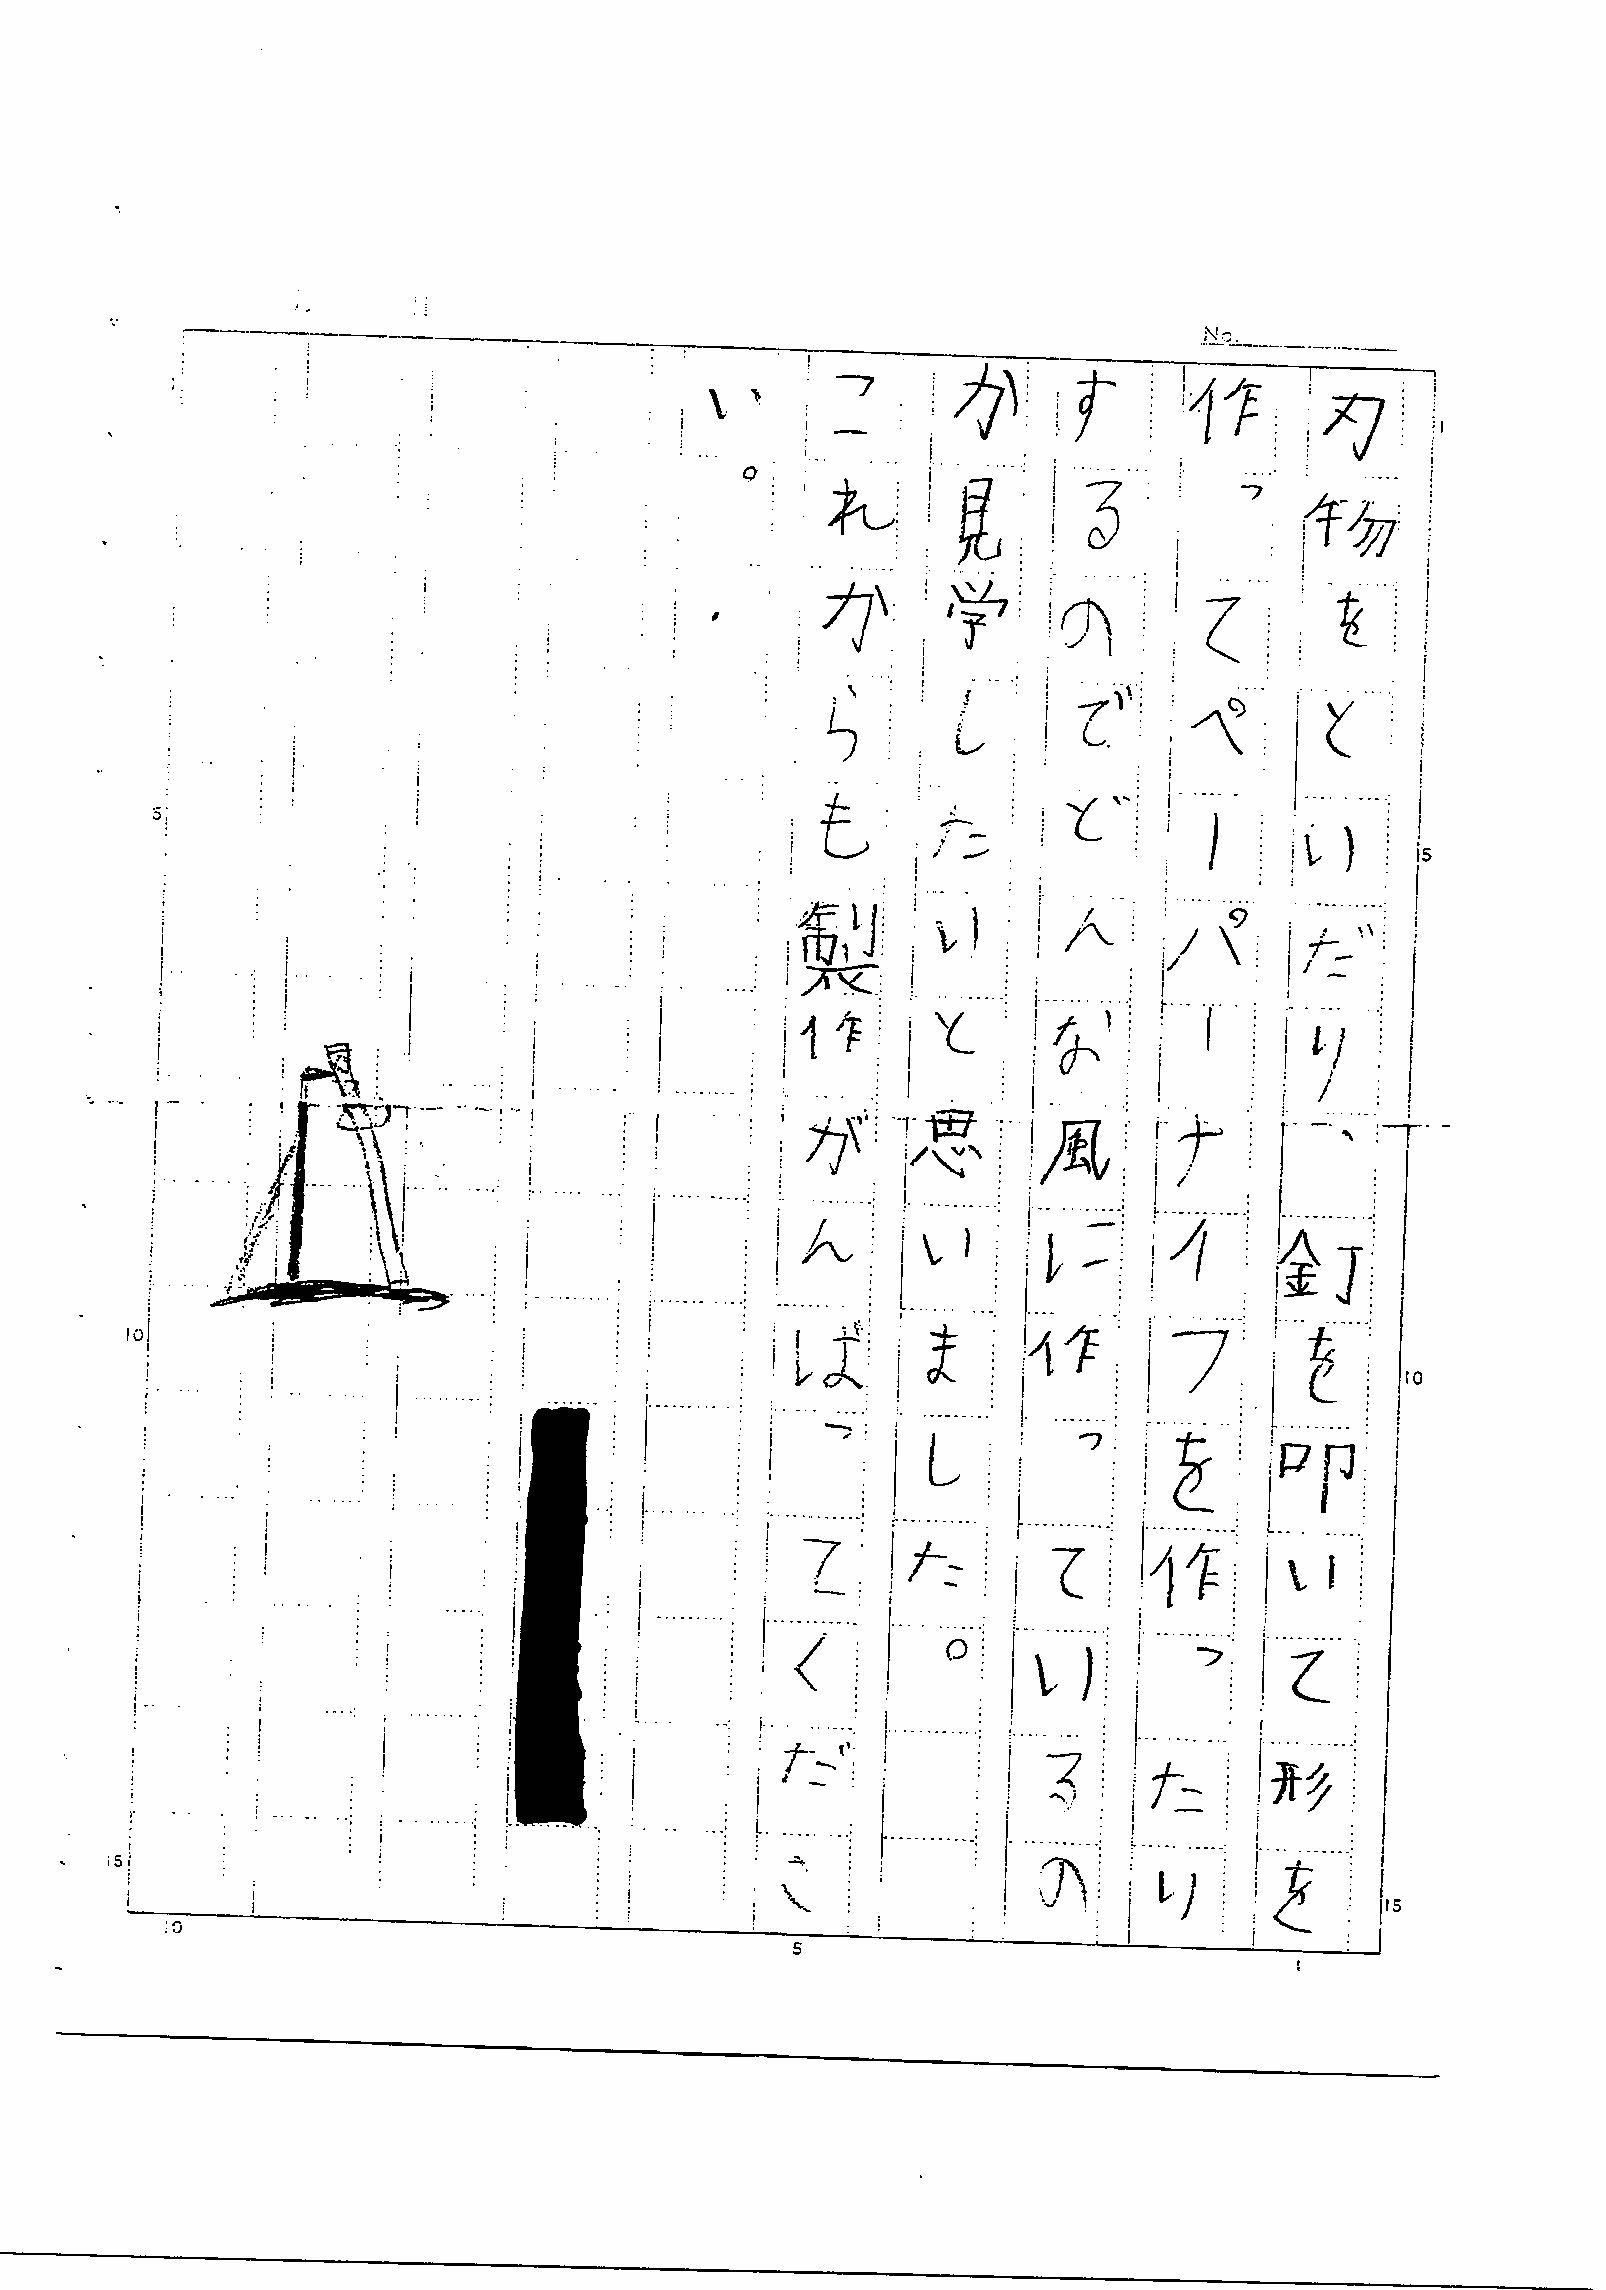 No.
刃物をといだり、釘を叩いて形を
作ってペーパーナイフを作ったり
するのでどんな風に作っているの
か見学したいと思いました。
これからも製作がんばってくださ
い。
1
5
10
15
5
10
15
1
5
10